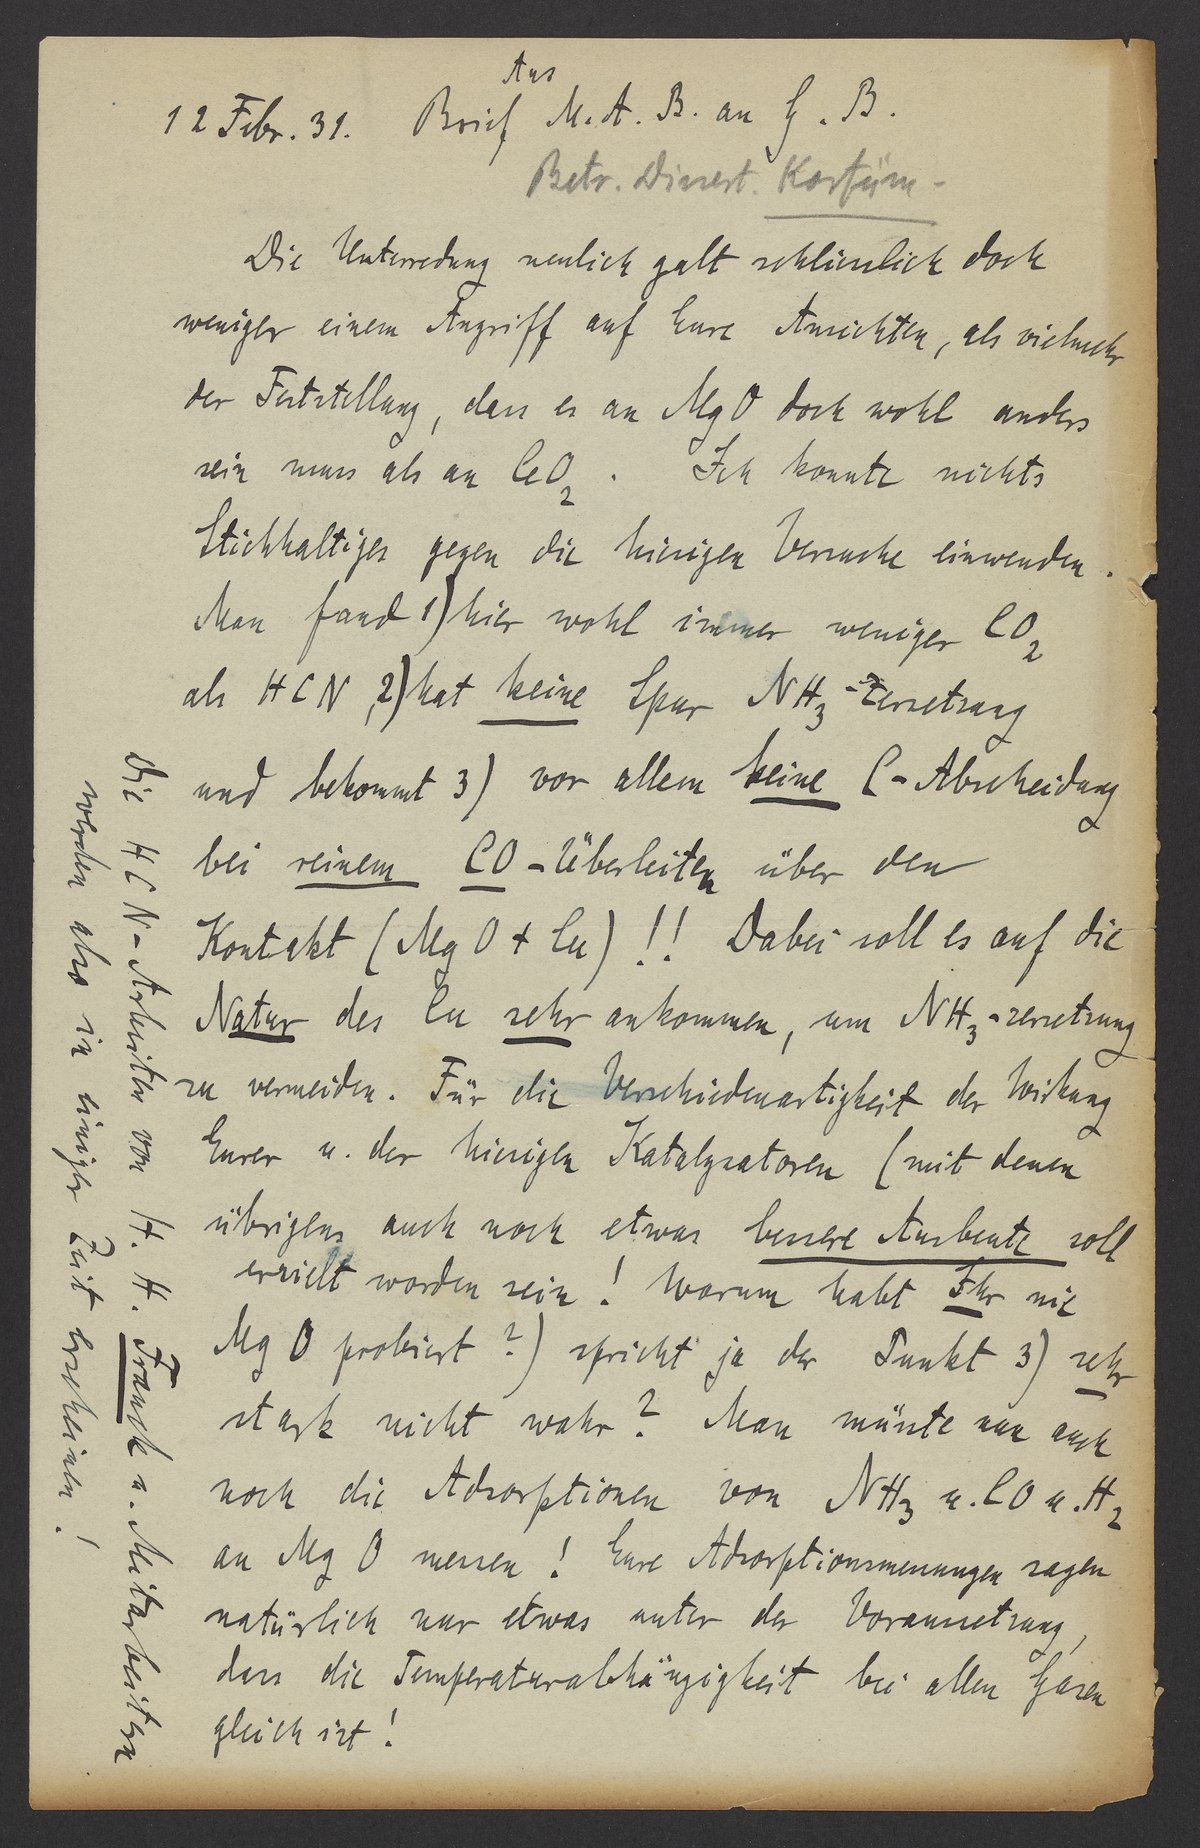 Aus
12 Febr. 31. Brief M.A.B. an G.B.
Betr. Dissert. Kortüm -
Die Unterredung neulich galt schliesslich doch
weniger einem Angriff auf Eure Ansichten, als vielmehr
der Feststellung, dass es an MgO doch wohl anders
sein muss als an CeO₂. Ich konnte nichts
Stichhaltiges gegen die hiesigen Versuche einwenden.
Man fand 1) hier wohl immer weniger CO₂
als HCN, 2) hat keine Spur NH₃-Zersetzung
und bekommt 3) vor allem keine C-Abscheidung
bei reinem CO-Überleiten über den
Kontakt (MgO + Cu)!! Dabei soll es auf die
Natur des Cu sehr ankommen, um NH₃-zersetzung
zu vermeiden. Für die Verschiedenartigkeit der Wirkung
Eurer u. der hiesigen Katalysatoren (mit denen
übrigens auch noch etwas bessere Ausbeute soll
erzielt worden sein! Warum habt Ihr nie
MgO probiert?) spricht ja der Punkt 3) sehr
stark nicht wahr? Man müsste nun auch
noch die Adsorptionen von NH₃ u. CO u. H₂
an MgO messen! Eure Adsorptionsmessungen sagen
natürlich nur etwas unter der Voraussetzung,
dass die Temperaturabhängigkeit bei allen Gasen
gleich ist!
Die HCN-Arbeiten von H. H. Franck u. Mitarbeitern
werden also in einiger Zeit erscheinen!